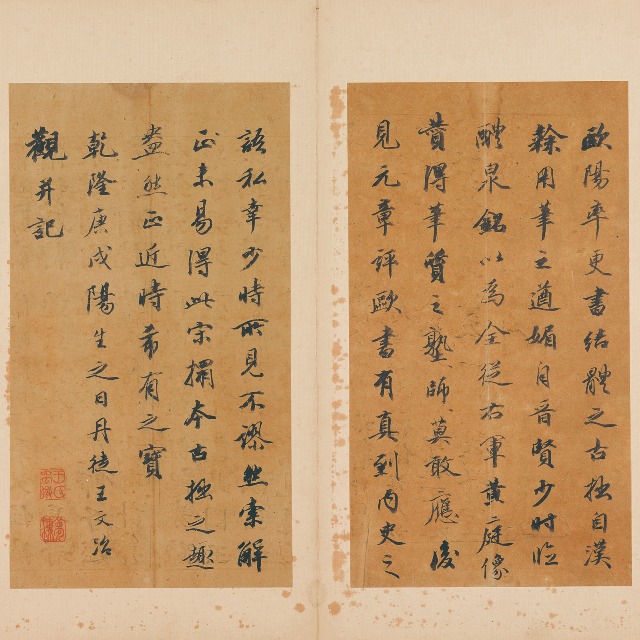 歐陽率更書結體之古拙自漢
隸用筆之遒媚自晉賢少時臨
醴泉銘以為全從右軍黃庭像
賛得筆質之塾師莫敢應後
見元章評歐書有真到內史之
語私幸少時所見不謬然索解
正未易得此宋搨本古拙之趣
盎然正近時希有之寶
乾隆庚戌陽生之日丹徒王文治
觀并記